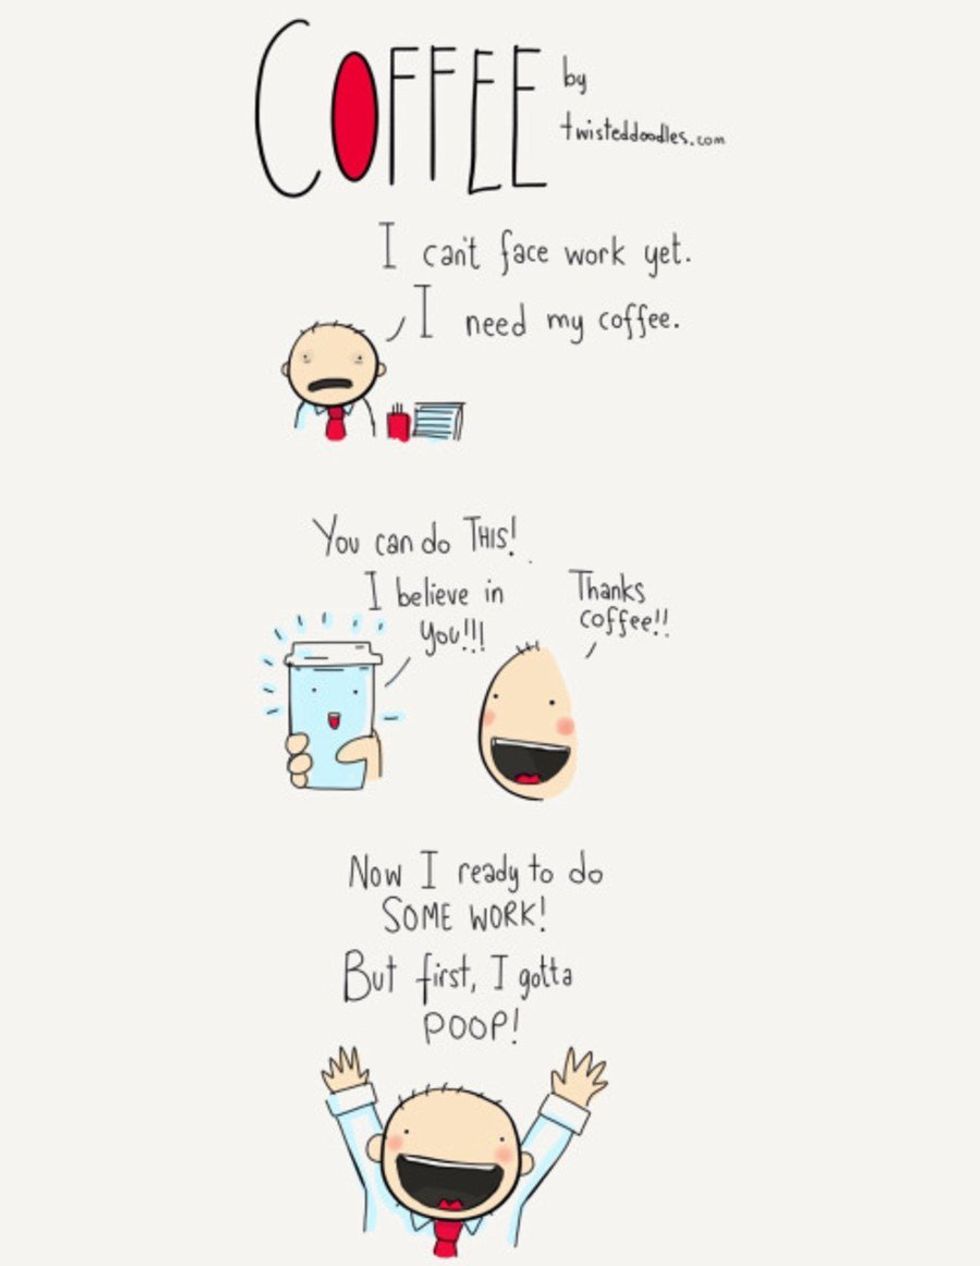 COFFEE
by
twisteddoodles.com
I can't face work yet.
I need my coffee.
You can do THIS!
I believe in
you!!!
Thanks
coffee!!
Now I ready to do
SOME WORK!
But first, I gotta
POOP!